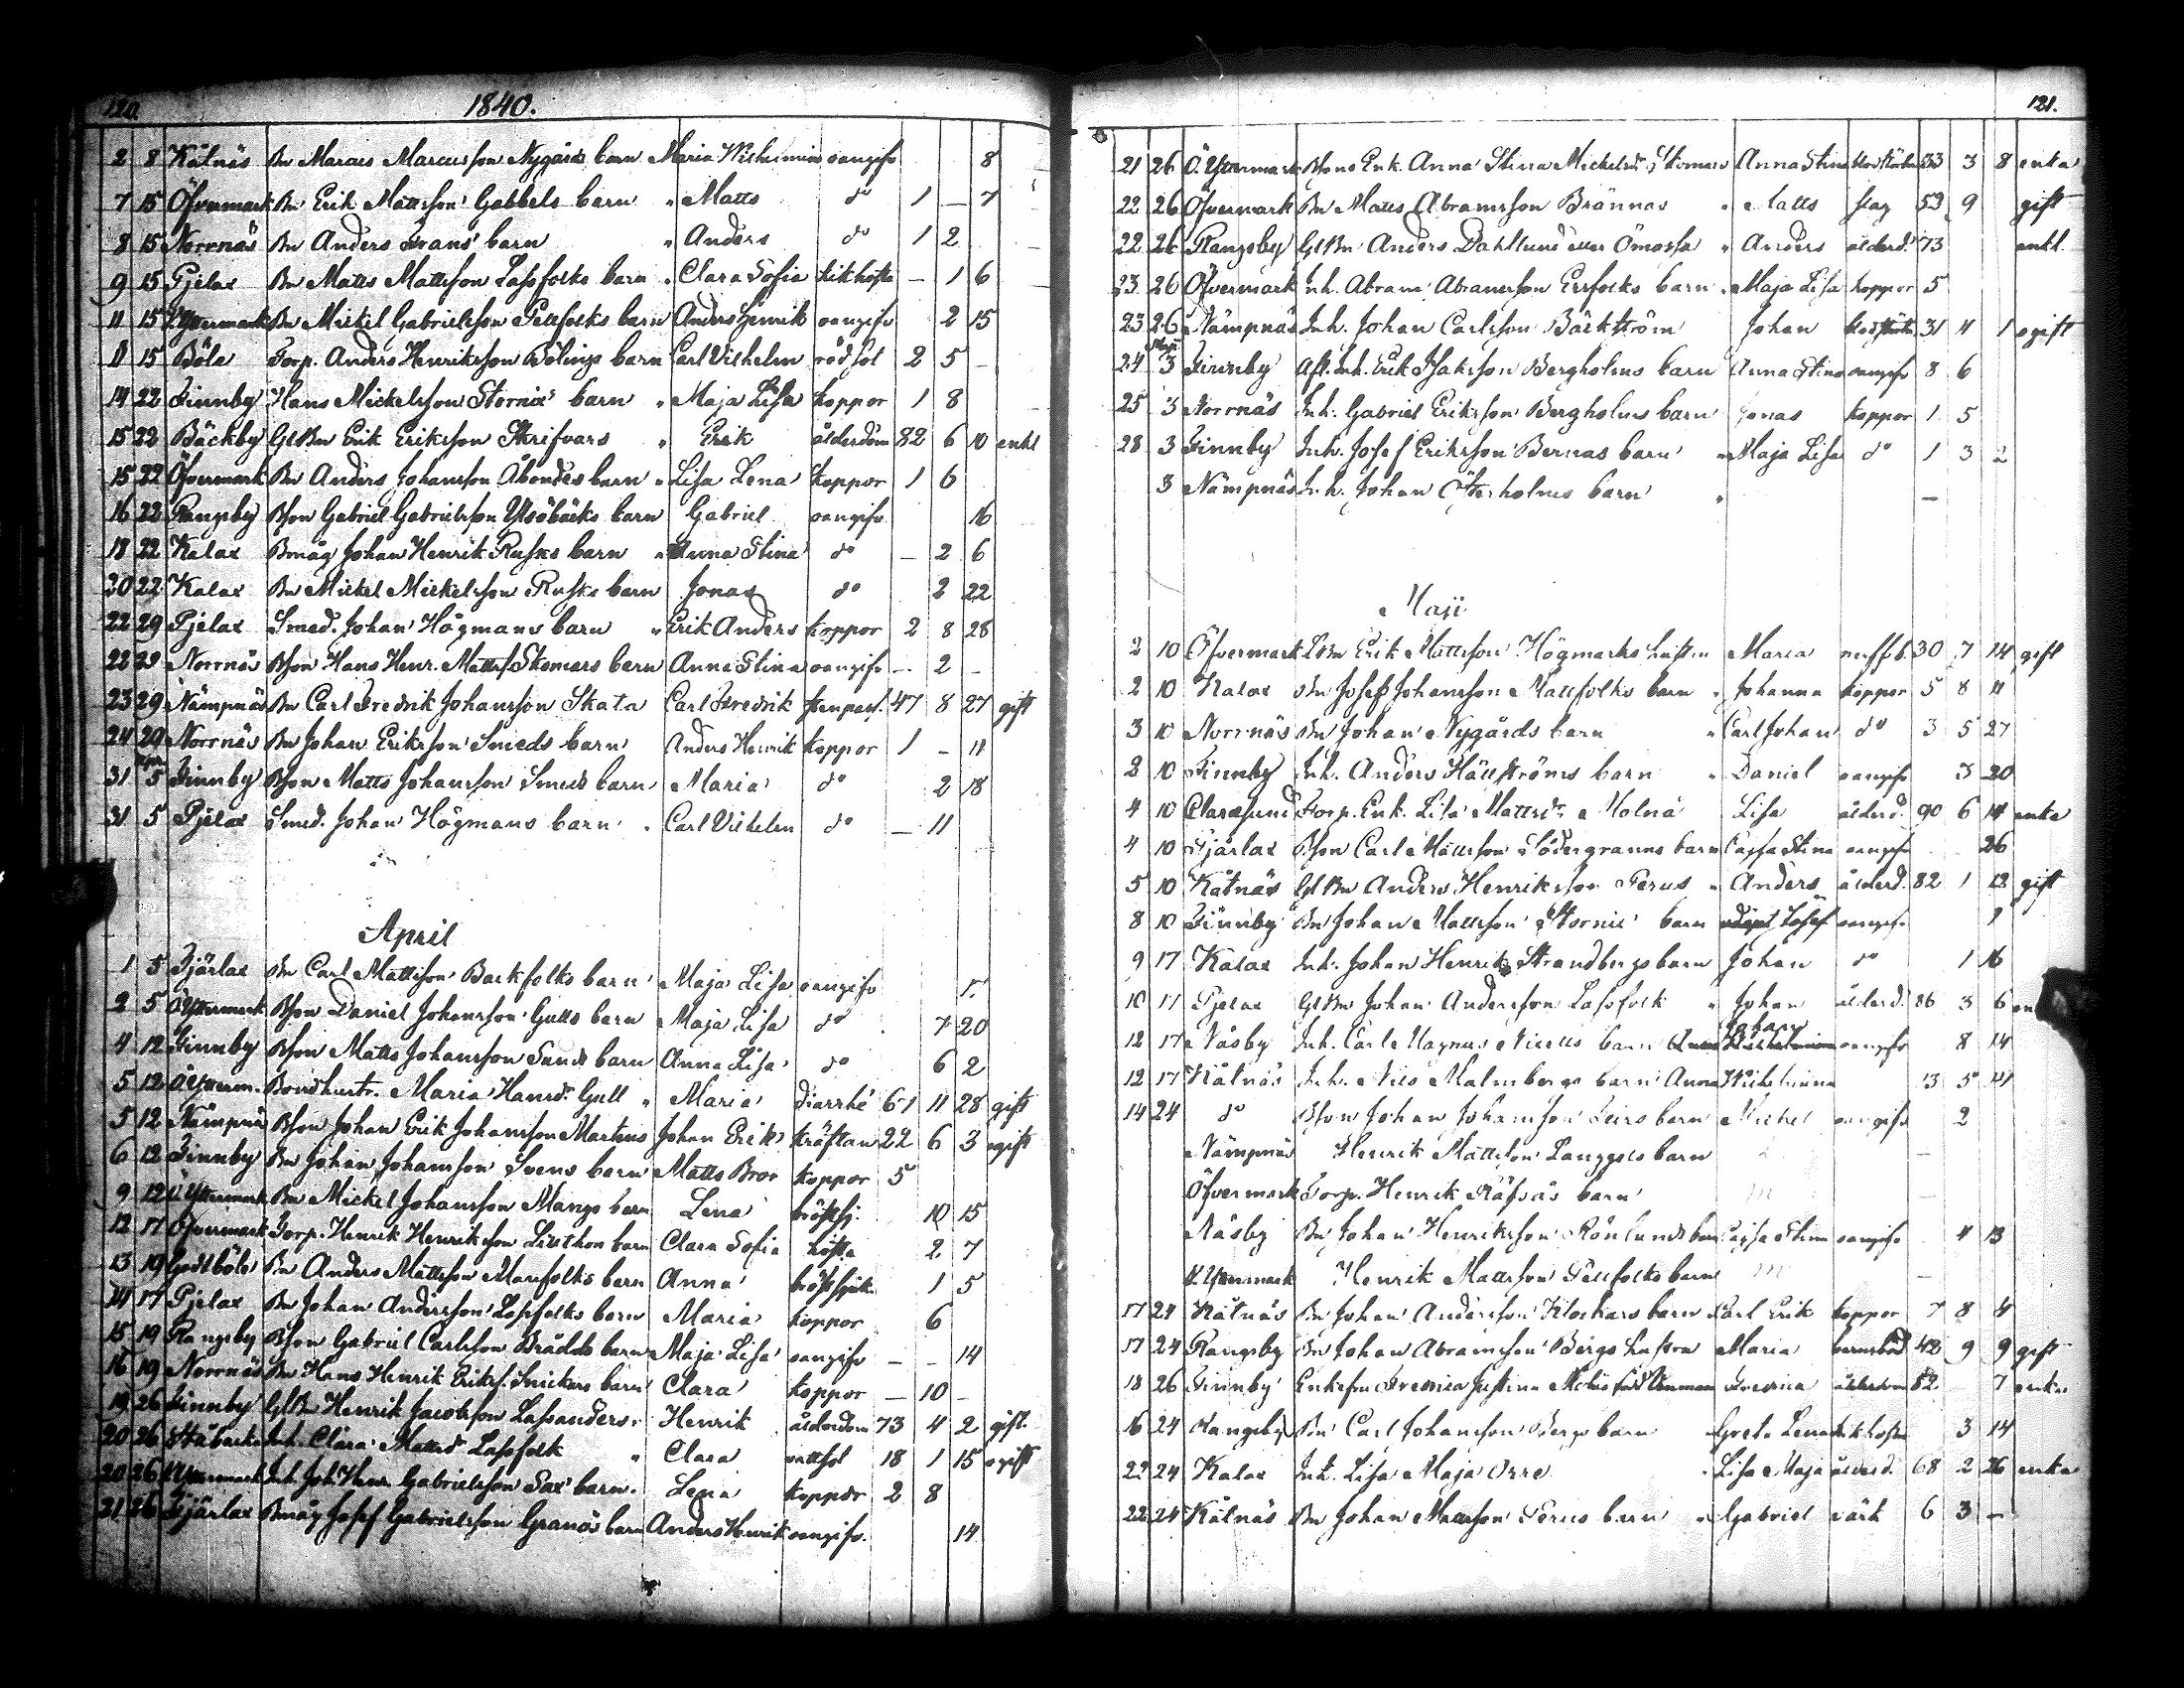 120. 1840.
2 8 Kätnäs Bn Marcus Marcusson Nygårds barn Maria Wilhelmina oangifv 8
7 15 Öfvermark Bn Erik Mattsson Gabbels barn " Matts do 1 — 7
8 15 Norrnäs Bn Anders Frans barn " Anders do 1 2
9 15 Pjelax Bn Matts Mattsson Lassfolks barn " Clara Sofia kikhosta — 1 6
11 15 Yttermark Bn Mickel Gabrielsson Pellfolks barn Anders Henrik oangifv 2 15
11 15 Böle Torp. Anders Henriksson Bölings barn Carl Vilhelm rödsot 2 5 —
14 22 Finnby Hans Mickelsson Stornix barn " Maja Lisa koppor 1 8
15 22 Bäckby Gl Bn Erik Eriksson Skrifvars " Erik ålderdom 82 6 10 enkl
15 22 Öfvermark Bn Anders Johansson Åbondes barn " Lisa Lena koppor 1 6
16 22 Rangsby Bson Gabriel Gabrielsson Ytsöbäcks barn Gabriel oangifv 16
18 22 Kalax Bmåg Johan Henrik Rusks barn " Anna Stina do — 2 6
20 22 Kalax Bn Mickel Mickelsson Rusks barn Jonas do 2 22
22 29 Pjelax Smed. Johan Högmans barn " Erik Anders koppor 2 8 28
22 29 Norrnäs Bson Hans Henr. Mattss. Skomars barn Anna Stina oangifv — 2 —
23 29 Nämpnäs Bn Carl Fredrik Johansson Skata Carl Fredrik stenpass. 47 8 27 gift
24 29 Norrnäs Bn Johan Eriksson Smeds barn Anders Henrik koppor 1 — 11
31 Apr. 5 Finnby Bson Matts Johansson Smeds barn Maria do 2 18
31 5 Pjelax Smed. Johan Högmans barn " Carl Vilhelm do — 11
April
1 5 Tjärlax Bn Carl Mattsson Backfolks barn Maja Lisa oangifv 1.
2 5 Ö Yttermark Bson Daniel Johansson Gulls barn Maja Lisa do 7 20
4 12 Finnby Bson Matts Johansson Sunds barn Anna Lisa do 6 2
5 12 ÖYtterm. Bondhustr. Maria Hansdr Gull " Maria diarrhé 61 11 28 gift
5 12 Nämpnäs Bson Johan Erik Johansson Martens Johan Erik kräftan 22 6 3 ogift
6 12 Finnby Bn Johan Johansson Svens barn Matts Bror koppor 5
9 12 Ö Yttermark Bn Mickel Johansson Mangs barn Lena bröstsj. 10 15
12 17 Öfvermark Torp. Henrik Henriksson Listhon barn Clara Sofia hosta 2 7
13 19 Gottböle Bn Anders Mattsson Marifolks barn Anna bröstsjuk. 1 5
14 17 Pjelax Bn Johan Andersson Lassfolks barn Maria koppor 6
15 19 Rangsby Bson Gabriel Carlsson Brådds barn Maja Lisa oangifv — — 14
16 19 Norrnäs Bn Hans Henrik Erikss. Snickars barn Clara koppor — 10 —
19 26 Finnby Gl Bn Henrik Jacobsson Lassanders " Henrik ålderdom 73 4 2 gift.
20 26 Ståbacka Inh. Clara Mattsdr Lassfolk " Clara vattsot 18 1 15 ogift
20 26 Yttermark Inh Joh Henr Gabrielsson Sax barn. Lena koppor 2 8
21 26 Tjärlax Bmåg Josef Gabrielsson Granös barn Anders Henrik oangifv. 14
121.
21 26 Ö. Yttermark Bsons Enk. Anna Stina Mickelsdr Skomars Anna Stina 33 3 8 enka
22 26 Öfvermark Bn Matts Abramsson Brännas " Matts slag 53 9 gift
22 26 Rangsby Gl Bn Anders Dahllund eller Ömossa " Anders ålderd. 73 enkl.
23 26 Öfvermark Inh. Abram Abramsson Erifolks barn " Maja Lisa koppor 5
23 26 Nämpnäs Inh. Johan Carlsson Bäckström Johan 31 11 1 ogift
24 Maji 3 Finnby Afl. Inh. Erik Isaksson Bergholms barn Anna Stina oangifv 8 6
25 3 Norrnäs Inh. Gabriel Eriksson Bergholms barn Jonas koppor 1 5
28 3 Finnby Inh. Josef Eriksson Bernas barn " Maja Lisa do 1 3 2
3 Nämpnäs Inh. Johan Österholms barn " —
Maji
2 10 Öfvermark Bn Erik Mattsson Högmarks hustru Maria 30 7 14 gift
2 10 Kalax Bn Josef Johansson Mattfolks barn " Johanna koppor 5 8 11
3 10 Norrnäs Bn Johan Nygårds barn " Carl Johan do 3 5 27
2 10 Finnby Inh. Anders Hällströms barn " Daniel oangifv 3 20
4 10 Claresund Torp. Enk. Lisa Mattsdr Molnä Lisa ålderd. 90 6 14 enka
4 10 Tjärlax Bson Carl Mattsson Södergranns barn Cajsa Stina oangifv 26
5 10 Kätnäs Gl Bn Anders Henriksson Perus " Anders ålderd. 82 1 12 gift
8 10 Finnby Bn Johan Mattsson Stornix barn Josef oangifv 1
9 17 Kalax Inh. Johan Henrik Strandbergs barn Johan do 1 16
10 17 Pjelax Gl Bn Johan Andersson Lassfolk " Johan ålderd. 86 3 6 en
12 17 Näsby Inh. Carl Magnus Nicells barn Johan oangifv 8 14
12 17 Kätnäs Inh. Nils Malmbergs barn Anna Wilhelmina 13 5 21
14 24 do Bson Johan Johansson Leirs barn Mickel oangifv 2
Nämpnäs Henrik Mattsson Langgårds barn —
Öfvermark Torp. Henrik Räfsås barn m —
Näsby Bn Johan Henriksson Rönlunds barn Cajsa Stina oangifv 4 13
Ö. Yttermark Henrik Mattsson Pellfolks barn m —
17 24 Kätnäs Bn Johan Andersson Klockars barn Carl Erik koppor 7 8 4
17 24 Rangsby Bn Johan Abramsson Bergs hustru Maria barnsbörd 42 9 9 gift
18 26 Finnby Enkefru Fredrica Justina Fredrica ålderdom 82 7 enka
16 24 Rangsby Bn Carl Johansson Bergs barn Greta Lena kikhosta 3 14
22 24 Kalax Inh. Lisa Maja Orre " Lisa Maja ålderd. 68 2 26 enka
22 24 Kätnäs Bn Johan Mattsson Perus barn " Gabriel värk 6 3 —